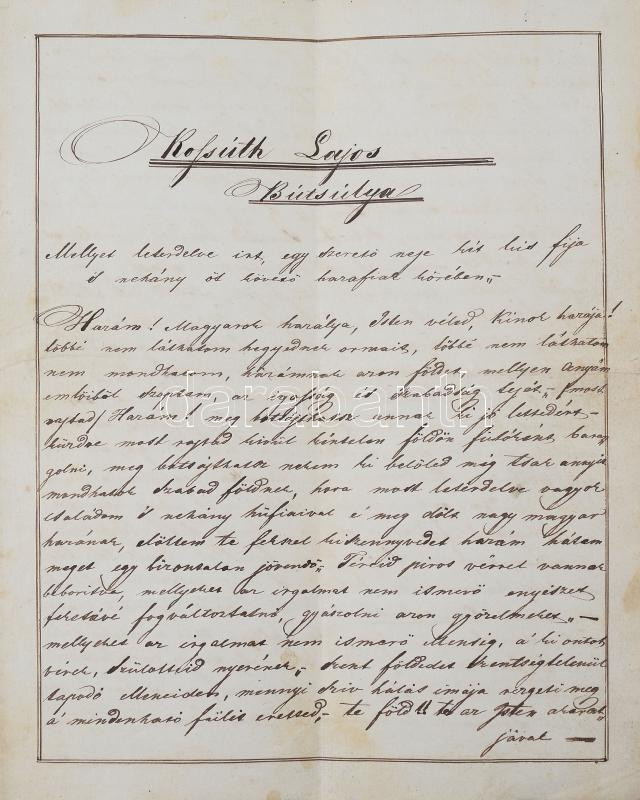 Kossúth Lajos
Bútsúlya
Mellyet leterdelve irt, egy szerető neje két kis fija
's nehány öt követő harafiak körében„
Hazám! Magyarok hazálya, Isten véled, Kinok hazája!
többé nem láthatom hegyednek ormait, többé nem láthatom
nem mondhatom, házámnak azon földet, mellyen anyám
emlőiből szoptam, az igasság és szabadság tejét,
Hazám! meg botsájtassz annak ki te letedért
most kivül kéntelen földön futóként baran
golni, meg botsájthatsz nekem ki belőled még tsak annyit
mondhatok szabad földnek, hova most leterdelve vagyok
családom 's nehány hűfiaival é meg dőlt nagy magyar
hazának, előttem te fekszel kiszennyvedet hazám hátam
meget egy bizontalan jövendő„ Téreid piros vérrel vannak
beboritva, mellyeket az irgalmat nem ismerő enyiszet
feketévé fog változtatnő, gyászolni azon győzelmeket„ —
mellyeket az irgalmat nem ismerő ellenség, a' ki ontok
vérek, szülötteid nyerének„ szent földedet szentségtelenül
tapodó elleneiden, mennyi sziv hálás imája rezgeti meg
á mindenható fülit eretted„ te föld!! te az Isten
jával —
darabanth